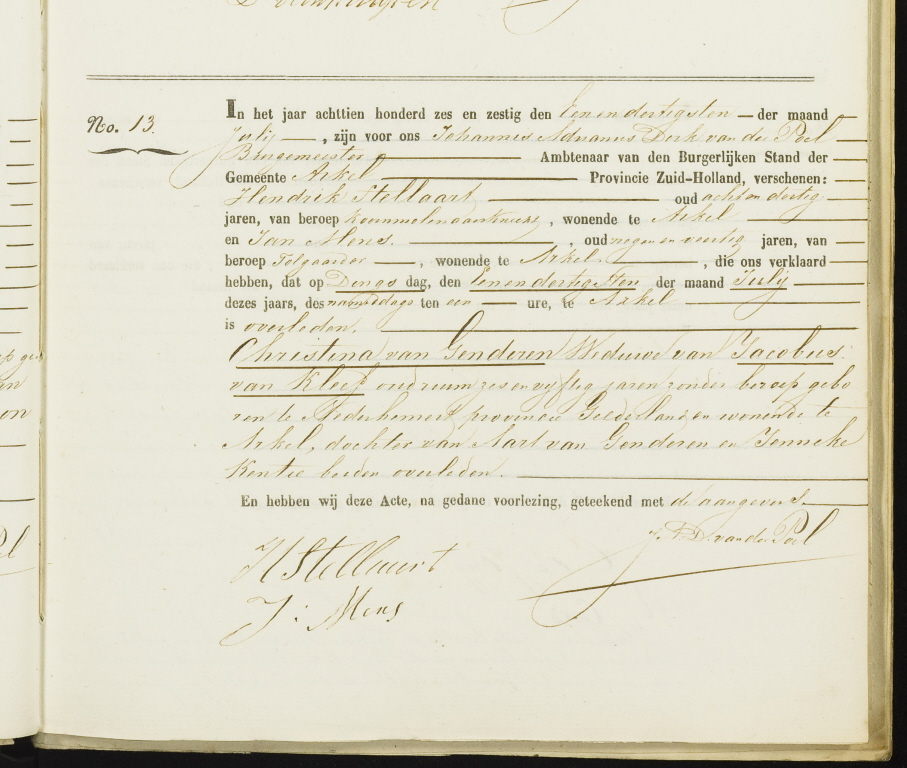 No. 13.
In het jaar achttien honderd zes en zestig den een en dertigsten der maand
Julij, zijn voor ons Johannes Adrianus Dirk van der Poel
Burgemeester Ambtenaar van den Burgerlijken Stand der
Gemeente Arkel Provincie Zuid-Holland, verschenen:
Hendrik Stellaart oud acht en dertig
jaren, van beroep koornmolenaarsknecht, wonende te Arkel
en Jan Mens. , oud negen en veertig jaren, van
beroep Tolgaarder, wonende te Arkel. , die ons verklaard
hebben, dat op Dings dag, den een en dertigsten der maand Julij
dezes jaars, des namiddags ten een ure, te Arkel
is overleden.
Christina van Genderen Weduwe van Jacobus
van Kleef oud ruim zes en vijftig jaren zonder beroep gebo
ren te Nederhemert provincie Gelderland en wonende te
Arkel, dochter van Aart van Genderen en Jenneke
Kentie beiden overleden.
En hebben wij deze Acte, na gedane voorlezing, geteekend met de aangevers.
J. A. D. van der Poel
H Stellaart
J: Mens